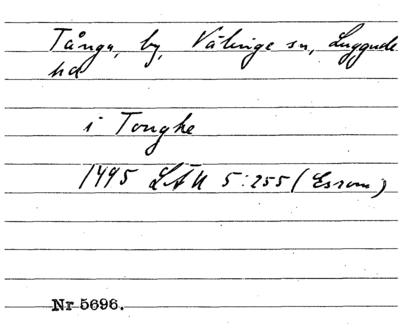 Tånga, by, Välinge sn, Luggude
hd
i Tonghe
1495 LÄU 5:255 (Esrom)
Nr 5696.